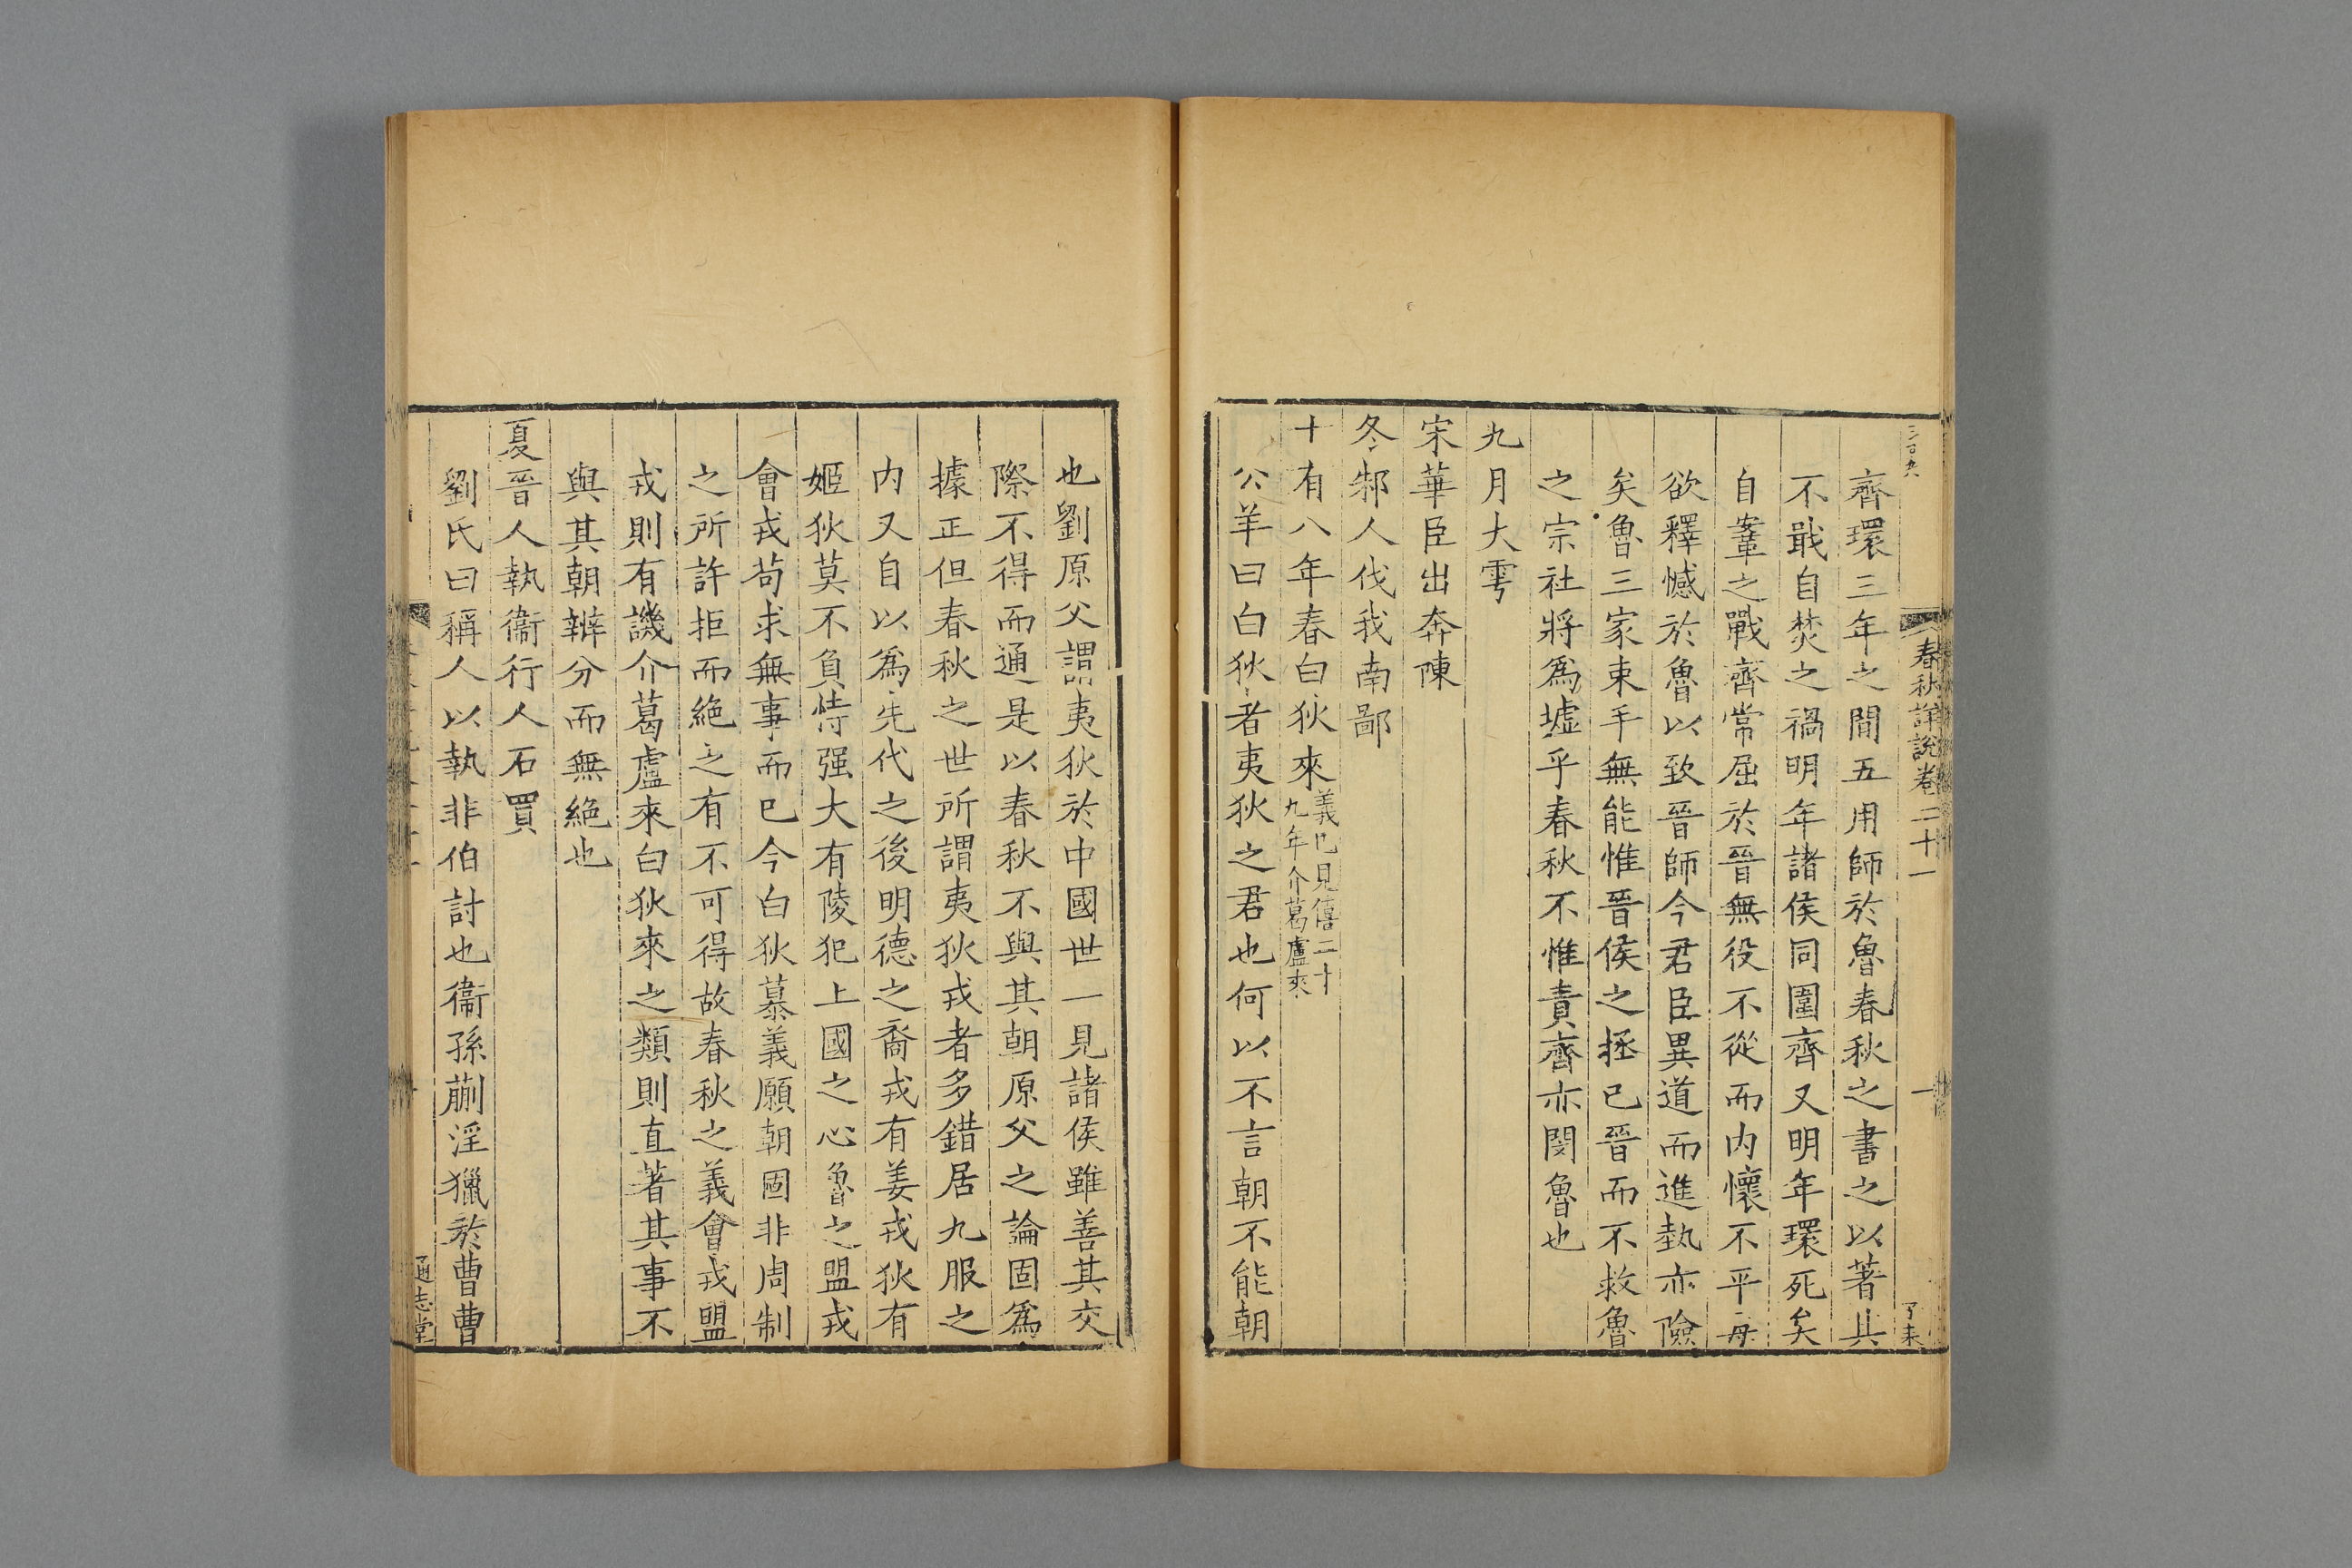 春秋詳說卷二十一
齊環三年之間五用師於魯春秋之書之以著其
不戢自焚之禍明年諸侯同圍齊又明年環死矣
自鞌之戰齊常屈於晉無役不從而内懷不平每
欲釋憾於魯以致晉師今君臣異道而進埶亦險
矣魯三家束手無能惟晉侯之拯已晉而不救魯
之宗社將爲墟乎春秋不惟責齊亦閔魯也
九月大雩
宋華臣出奔陳
冬邾人伐我南鄙
十有八年春白狄來義已見僖二十
九年介葛盧來
公羊曰白狄者夷狄之君也何以不言朝不能朝
也劉原父謂夷狄於中國世一見諸侯雖善其交
際不得而通是以春秋不與其朝原父之論固爲
據正但春秋之世所謂夷狄戎者多錯居九服之
内又自以爲先代之後明德之裔戎有姜戎狄有
姬狄莫不負恃强大有陵犯上國之心魯之盟戎
會戎苟求無事而已今白狄慕義願朝固非周制
之所許拒而絶之有不可得故春秋之義會戎盟
戎則有譏介葛盧來白狄來之類則直著其事不
與其朝辨分而無絶也
夏晉人執衞行人石買
劉氏曰稱人以執非伯討也衞孫蒯淫獵於曹曹
通志堂